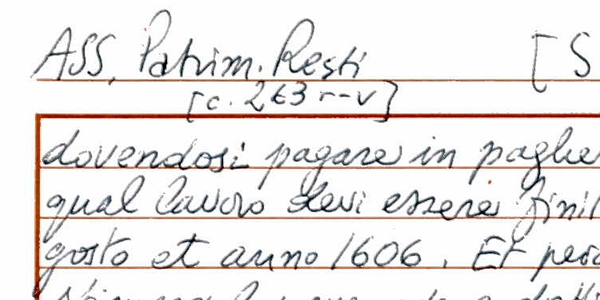 ASS, Patrim. Resti [S
[c. 263 r-v]
dovendosi pagare in paghe
qual lavoro devi essere finit
gosto et anno 1606. Et per